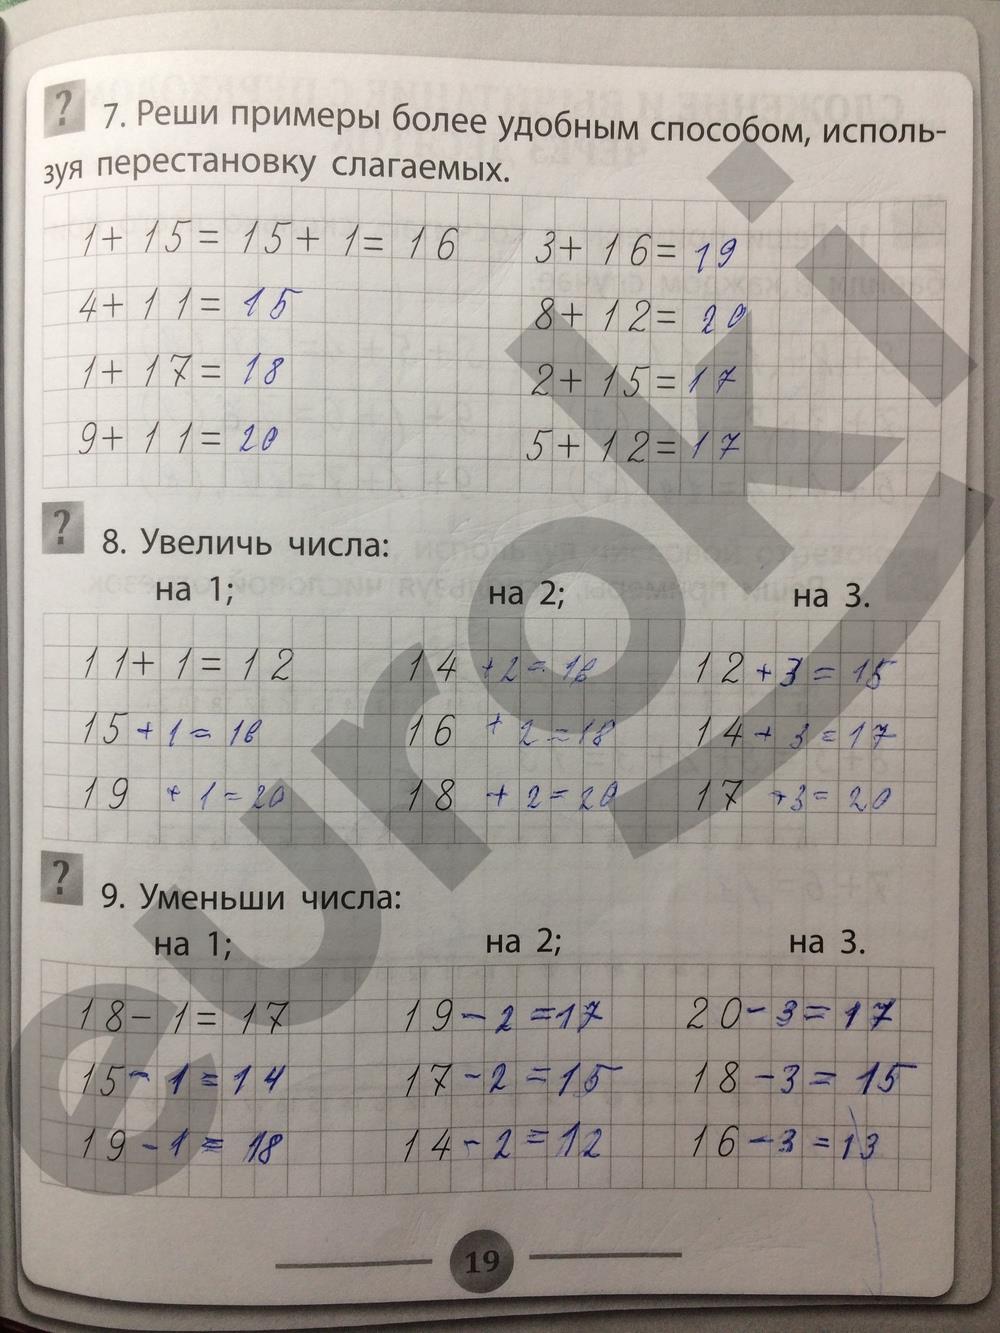 ? 7. Реши примеры более удобным способом, исполь-
зуя перестановку слагаемых.
1 + 15 = 15 + 1 = 16 3 + 16 = 19
4 + 11 = 15 8 + 12 = 20
1 + 17 = 18 2 + 15 = 17
9 + 11 = 20 5 + 12 = 17
? 8. Увеличь числа:
на 1; на 2; на 3.
11 + 1 = 12 14 + 2 = 16 12 + 3 = 15
15 + 1 = 16 16 + 2 = 18 14 + 3 = 17
19 + 1 = 20 18 + 2 = 20 17 + 3 = 20
? 9. Уменьши числа:
на 1; на 2; на 3.
18 - 1 = 17 19 - 2 = 17 20 - 3 = 17
15 - 1 = 14 17 - 2 = 15 18 - 3 = 15
19 - 1 = 18 14 - 2 = 12 16 - 3 = 13
19
euroki